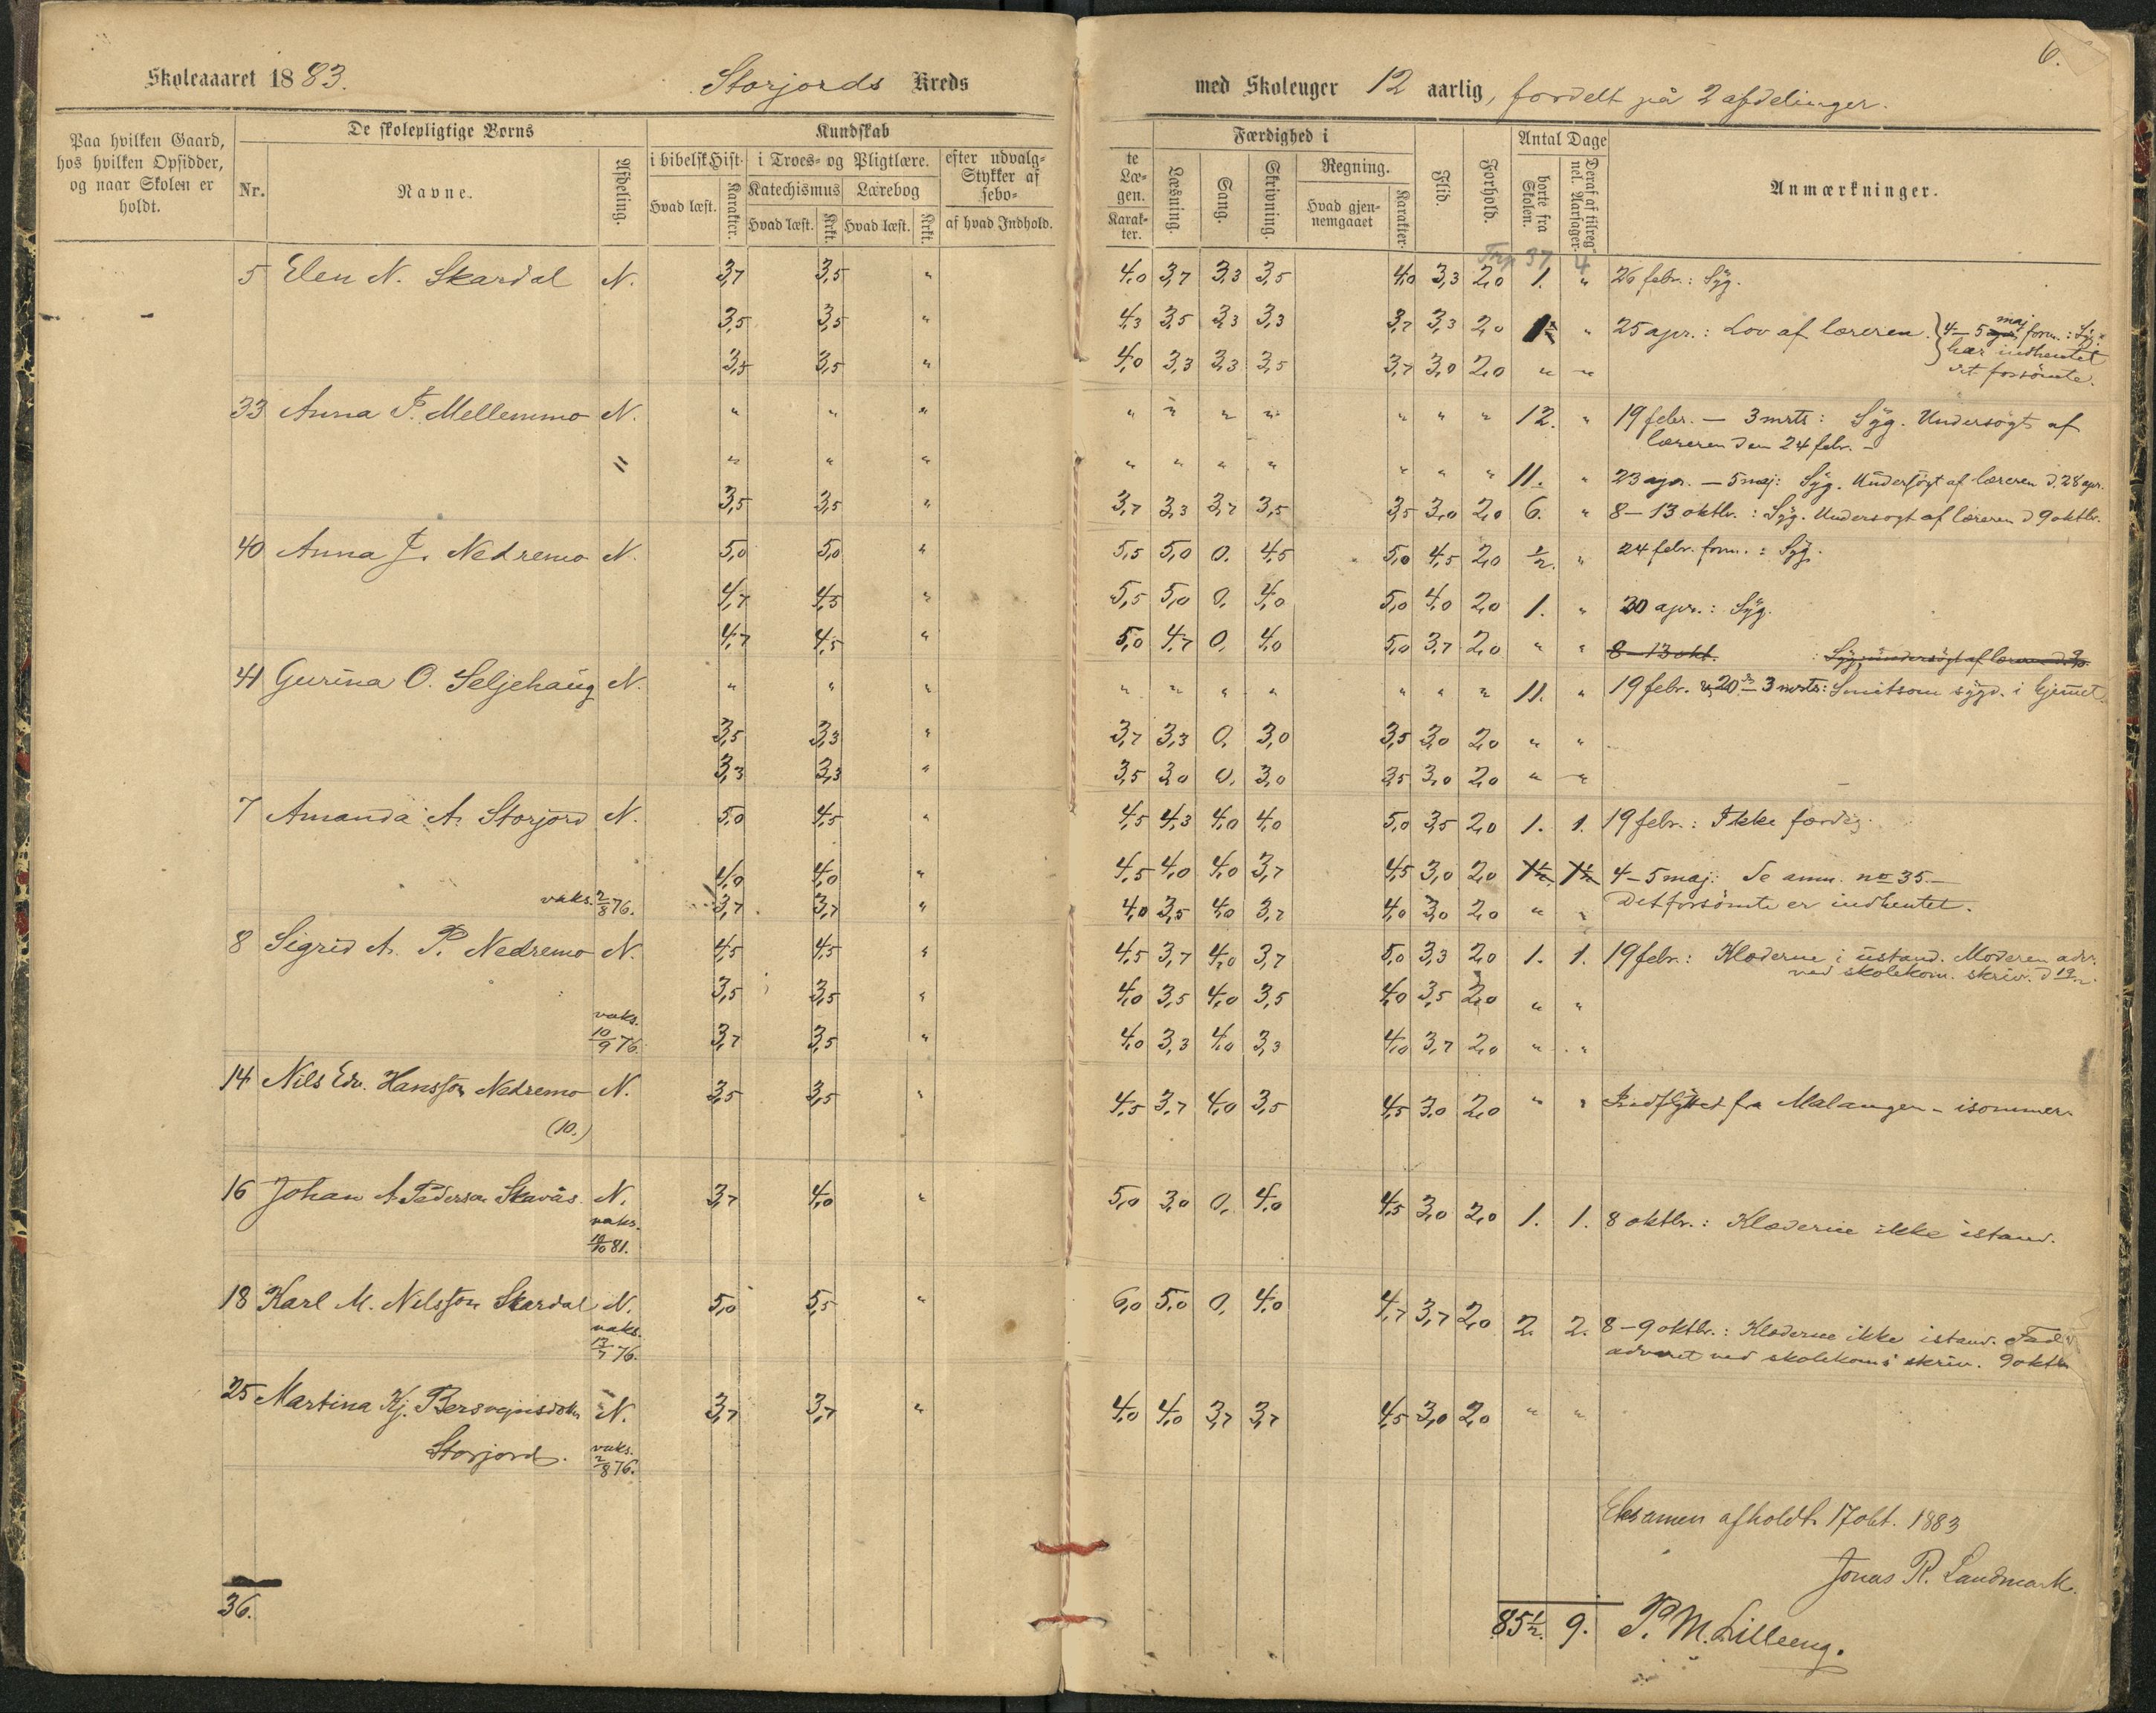 6.
Skoleaaret 1883. Storjords Kreds med Skoleuger 12 aarlig, fordelt på 2 afdelinger.
Paa hvilken Gaard, hos hvilken Opsidder, og naar Skolen er holdt.
De skolepligtige Børns
Nr. Navne. Afdeling.
Kundskab
i bibelsk Hist. Hvad læst. Karakter.
i Troes- og Pligtlære. Katechismus Hvad læst. Krkt. Lærebog Hvad læst. Krkt.
efter udvalg- Stykker af sebo- af hvad Indhold.
te Læ- gen. Karak- ter.
Færdighed i
Læsning. Sang. Skrivning. Regning. Hvad gjen- nemgaaet Karakter.
Flid. Forhold.
Antal Dage
borte fra Skolen. Deraf af tilreg- nel. Aarsager.
Anmærkninger.
37 4
5 Elen N. Skardal N. 3,7 3,5 " 4,0 3,7 3,3 3,5 4,0 3,3 2,0 1. " 26 febr.: Syg.
3,5 3,5 " 4,3 3,5 3,3 3,3 3,7 3,3 2,0 " 25 apr.: Lov af læreren. 4–5 maj form.: Syg.
har indhentet
det forsömte.
3,5 3,5 " 4,0 3,3 3,3 3,5 3,7 3,0 2,0 " "
33 Anna P. Mellemmo N. " " " " " " " " " " 12. " 19 febr. — 3 mrts: Syg. Undersögt af
læreren den 24 febr. –
" " " " " " " " " " " 11. " 23 apr. — 5 maj: Syg. Undersögt af læreren d. 28 apr.
3,5 3,5 " 3,7 3,3 3,7 3,5 3,5 3,0 2,0 6. " 8–13 oktbr.: Syg. Undersögt af læreren d 9 oktbr.
40 Anna J. Nedremo N. 5,0 5,0 " 5,5 5,0 0. 4,5 5,0 4,5 2,0 1/2. " 24 febr. form.: Syg.
4,7 4,5 " 5,5 5,0 0, 4,0 5,0 4,0 2,0 1. " 30 apr.: Syg.
4,7 4,5 " 5,0 4,7 0, 4,0 5,0 3,7 2,0 " " 8–13 okt. : Syg, undersögt af læreren d. 9.
41 Gurina O. Seljehaug N. " " " " " " " " " " 11. " 19 febr. 20 – 3 mrts: Smitsom sygd. i hjemmet.
3,5 3,3 " 3,7 3,3 0, 3,0 3,5 3,0 2,0 " "
3,3 3,3 " 3,5 3,0 0, 3,0 3,5 3,0 2,0 " "
7 Amanda A. Storjord N. 5,0 4,5 " 4,5 4,3 4,0 4,0 5,0 3,5 2,0 1. 1. 19 febr.: Ikke færdig.
4,0 4,0 " 4,5 4,0 4,0 3,7 4,5 3,0 2,0 1 1/2. 1 1/2 4–5 maj: Se anm. no 35.–
vaks. 2/8 76. 3,7 3,7 " 4,0 3,5 4,0 3,7 4,0 3,0 2,0 " " Det forsömte er indhentet.
8 Sigrid A. P. Nedremo N. 4,5 4,5 " 4,5 3,7 4,0 3,7 5,0 3,3 2,0 1. 1. 19 febr.: Klæderne i ustand. Moderen adv.
ved skolekom. skriv. d 19
3,5 3,5 " 4,0 3,5 4,0 3,5 4,0 3,5 2,0 " "
vaks. 10/9 76. 3,7 3,5 " 4,0 3,3 4,0 3,3 4,0 3,7 2,0 " "
14 Nils Edv. Hansson Nedremo N. 3,5 3,5 " 4,5 3,7 4,0 3,5 4,5 3,0 2,0 " " Indflyttet fra Malangen – isommer.
(10.)
16 Johan A. Pederson Skavås N. 3,7 4,0 " 5,0 3,0 0, 4,0 4,5 3,0 2,0 1. 1. 8 oktbr.: Klæderne ikke istand.
vaks. 81.
18 Karl M. Nilsson Skardal N. 5,0 5,5 " 6,0 5,0 0, 4,0 4,7 3,7 2,0 2. 2. 8–9 oktbr.: Klæderne ikke istand. Fad.
vaks. 13/7 76. advaret ved skolekoms skriv. 9 oktbr
25 Martina Kj. Bersvejnsdotr N. 3,7 3,7 " 4,0 4,0 3,7 3,7 4,5 3,0 2,0 " "
Storjord. vaks. 2/8 76.
Eksamen afholdt 17 okt. 1883
Jonas R. Landmark.
36. 85 1/2. 9. P. M. Lilleeng.